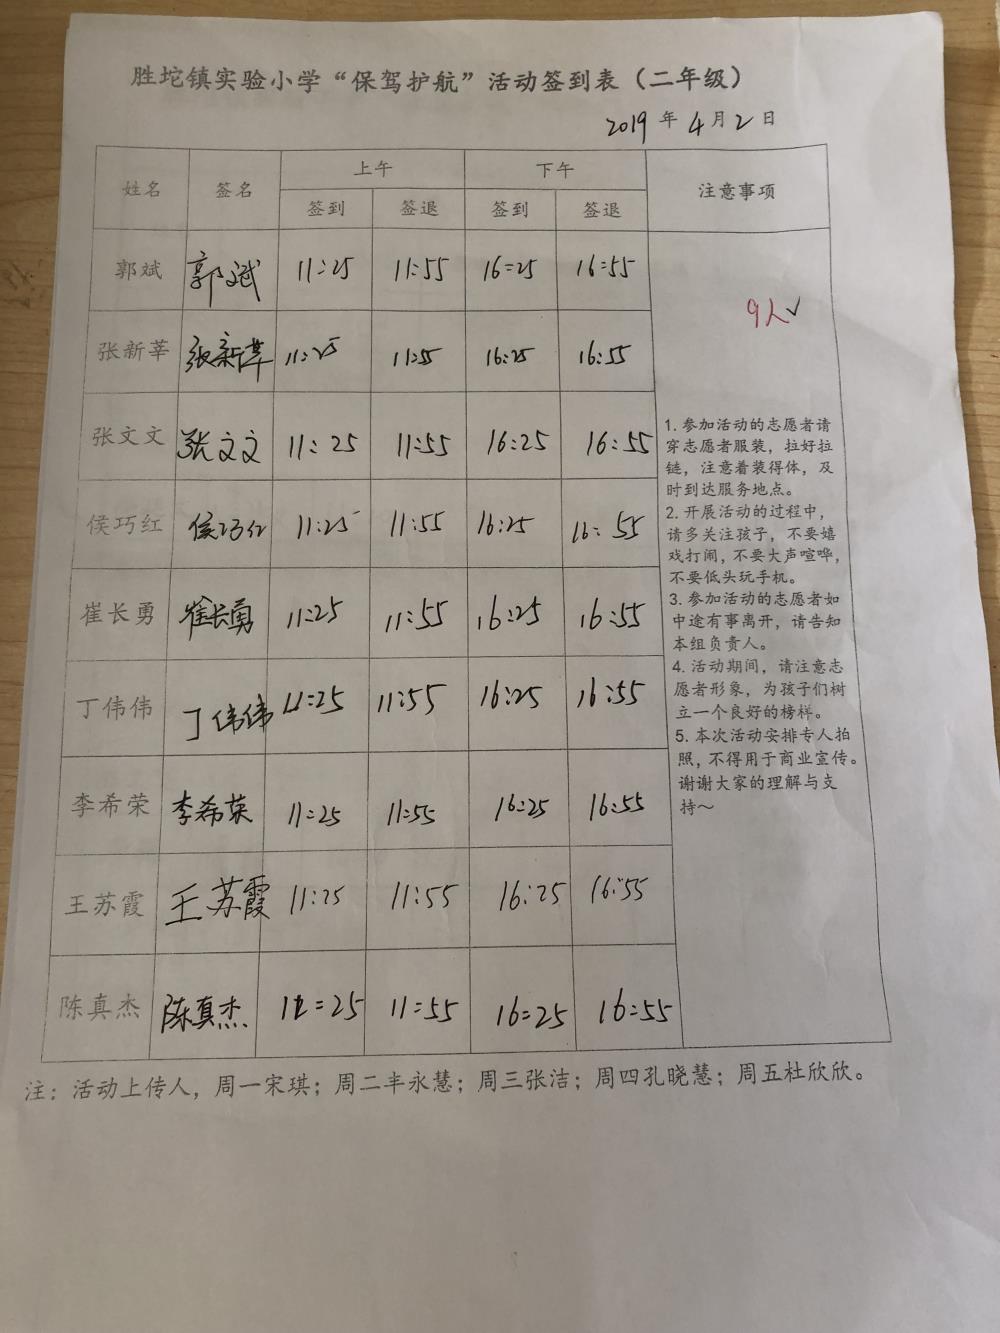 胜坨镇实验小学“保驾护航”活动签到表（二年级）
2019 年 4 月 2 日
姓名 签名 上午 下午 注意事项
签到 签退 签到 签退
郭斌 郭斌 11:25 11:55 16:25 16:55
9人✓
张新莘 张新莘 11:25 11:55 16:25 16:55
张文文 张文文 11:25 11:55 16:25 16:55
侯巧红 侯巧红 11:25 11:55 16:25 16:55
崔长勇 崔长勇 11:25 11:55 16:25 16:55
丁伟伟 丁伟伟 11:25 11:55 16:25 16:55
李希荣 李希荣 11:25 11:55 16:25 16:55
王苏霞 王苏霞 11:25 11:55 16:25 16:55
陈真杰 陈真杰 11:25 11:55 16:25 16:55
1. 参加活动的志愿者请
穿志愿者服装，拉好拉
链，注意着装得体，及
时到达服务地点。
2. 开展活动的过程中，
请多关注孩子，不要嬉
戏打闹，不要大声喧哗，
不要低头玩手机。
3. 参加活动的志愿者如
中途有事离开，请告知
本组负责人。
4. 活动期间，请注意志
愿者形象，为孩子们树
立一个良好的榜样。
5. 本次活动安排专人拍
照，不得用于商业宣传。
谢谢大家的理解与支
持～
注：活动上传人，周一宋琪；周二丰永慧；周三张洁；周四孔晓慧；周五杜欣欣。